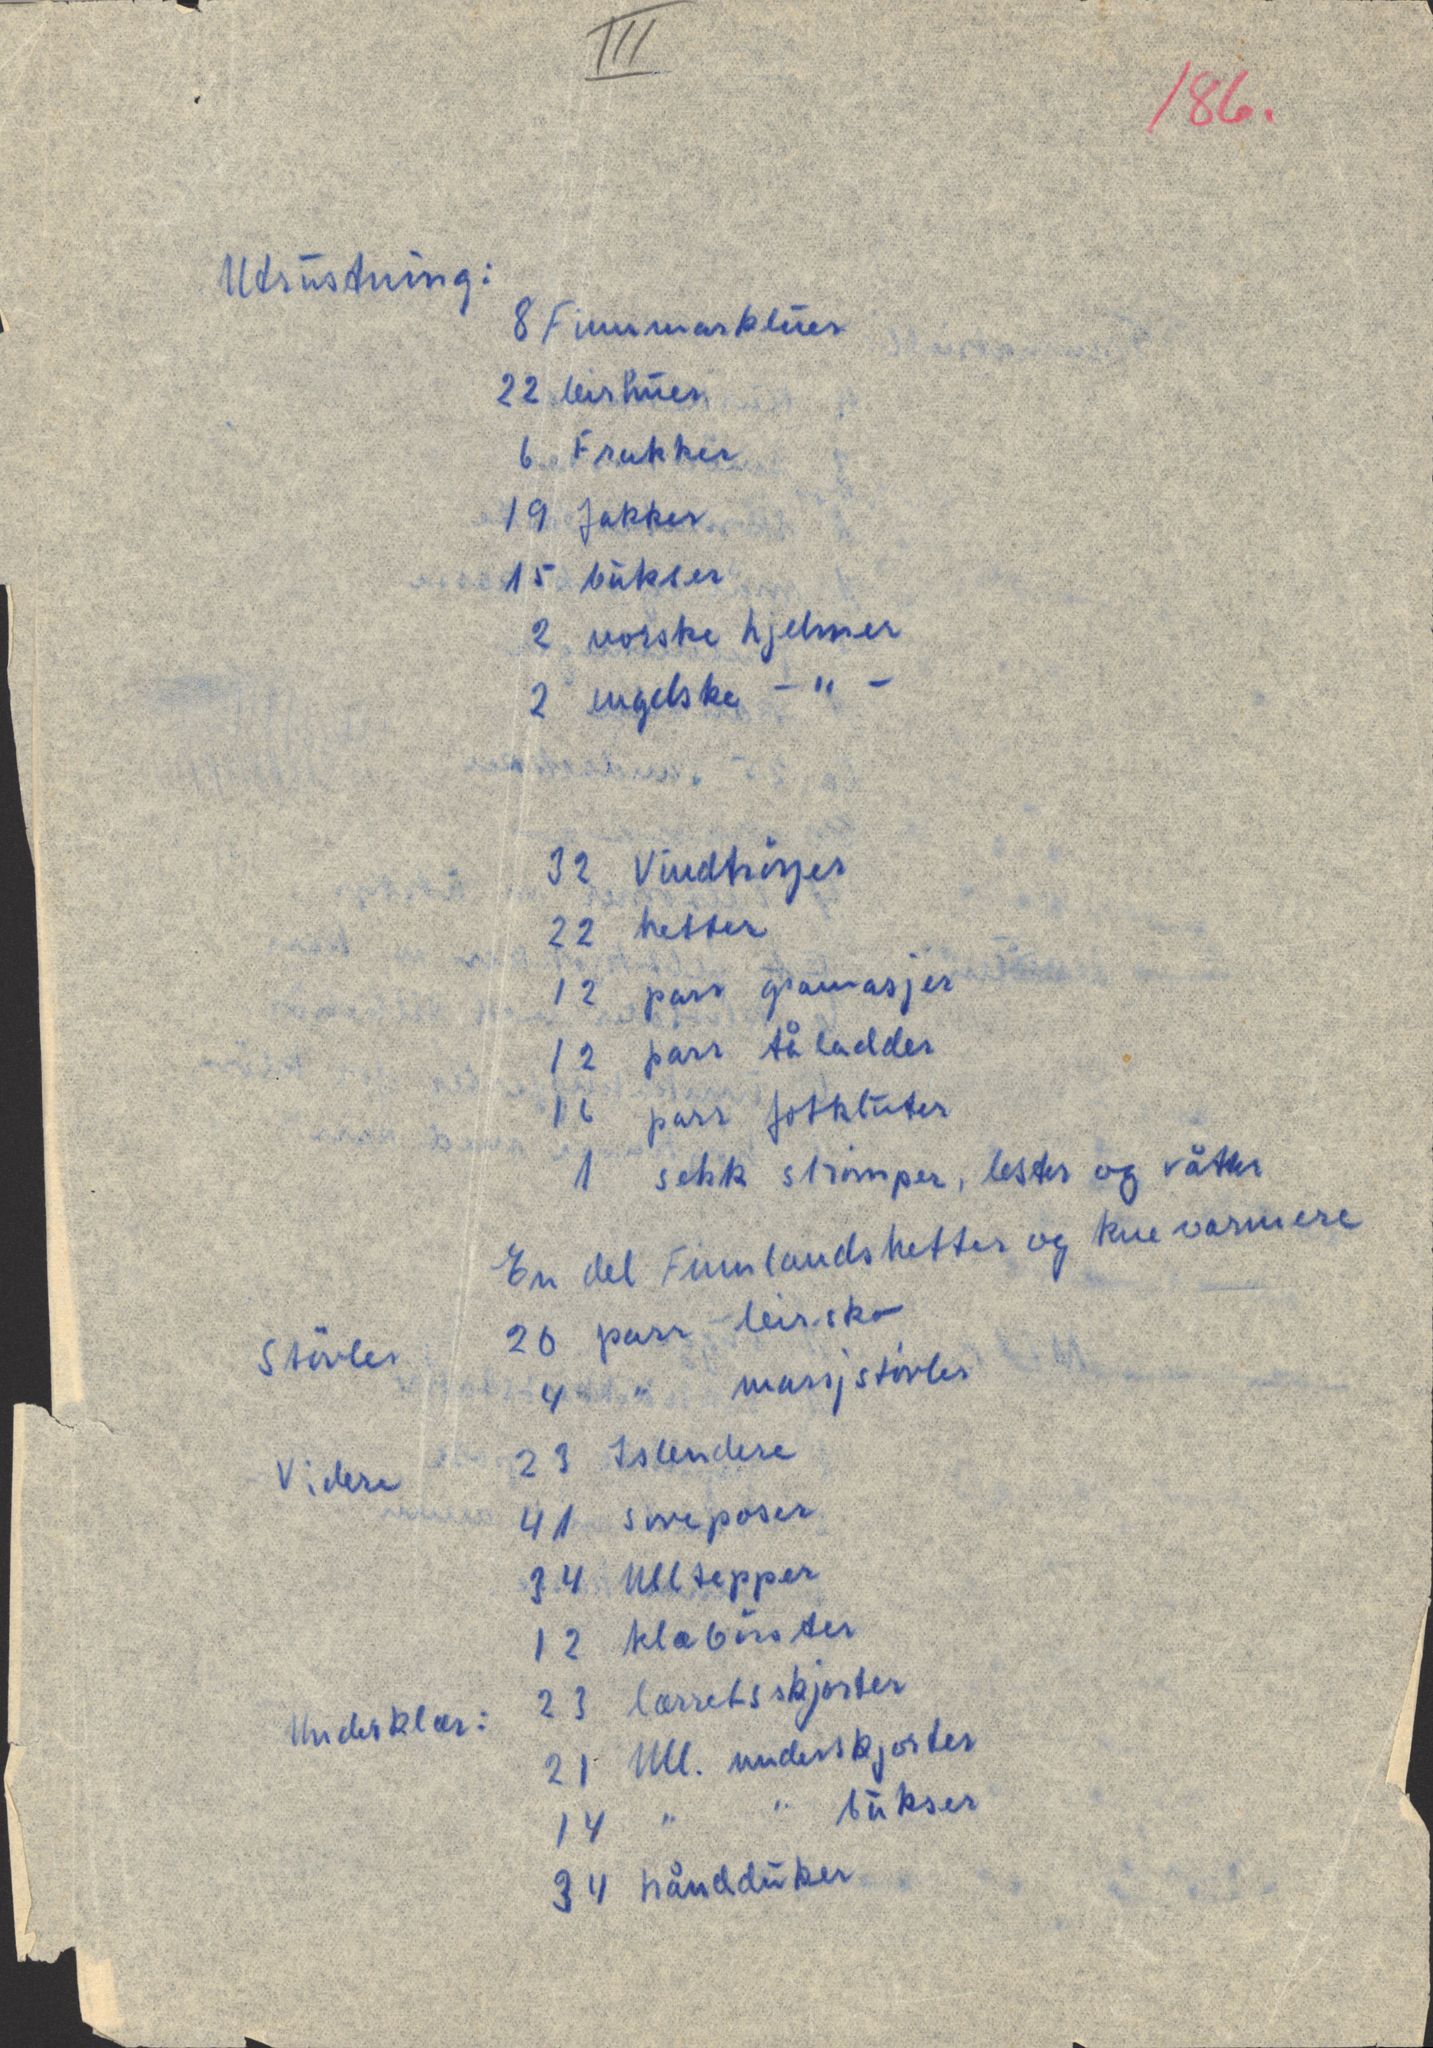 III
186.
Utrüstning:
8 Finnmarklüer
22 leirlüer
6 Frakker
19 Jakker
15 bükser
2 norske hjelmer
2 engelske - " -
32 Vindtröyer
22 hetter
12 parr gamasjer
12 parr tåladder
16 parr fotklüter
1 sekk strömper, lester og våtter
En del Finnlandshetter og knevarmere
Stövler 20 parr leirsko
4 " marsjstövler
Videre 23 Islendere
41 soveposer
34 Ulltepper
12 klæbörster
23 lærretsskjorter
Underklær:
21 Ull. underskjorter
14 " " bükser
34 hånddüker